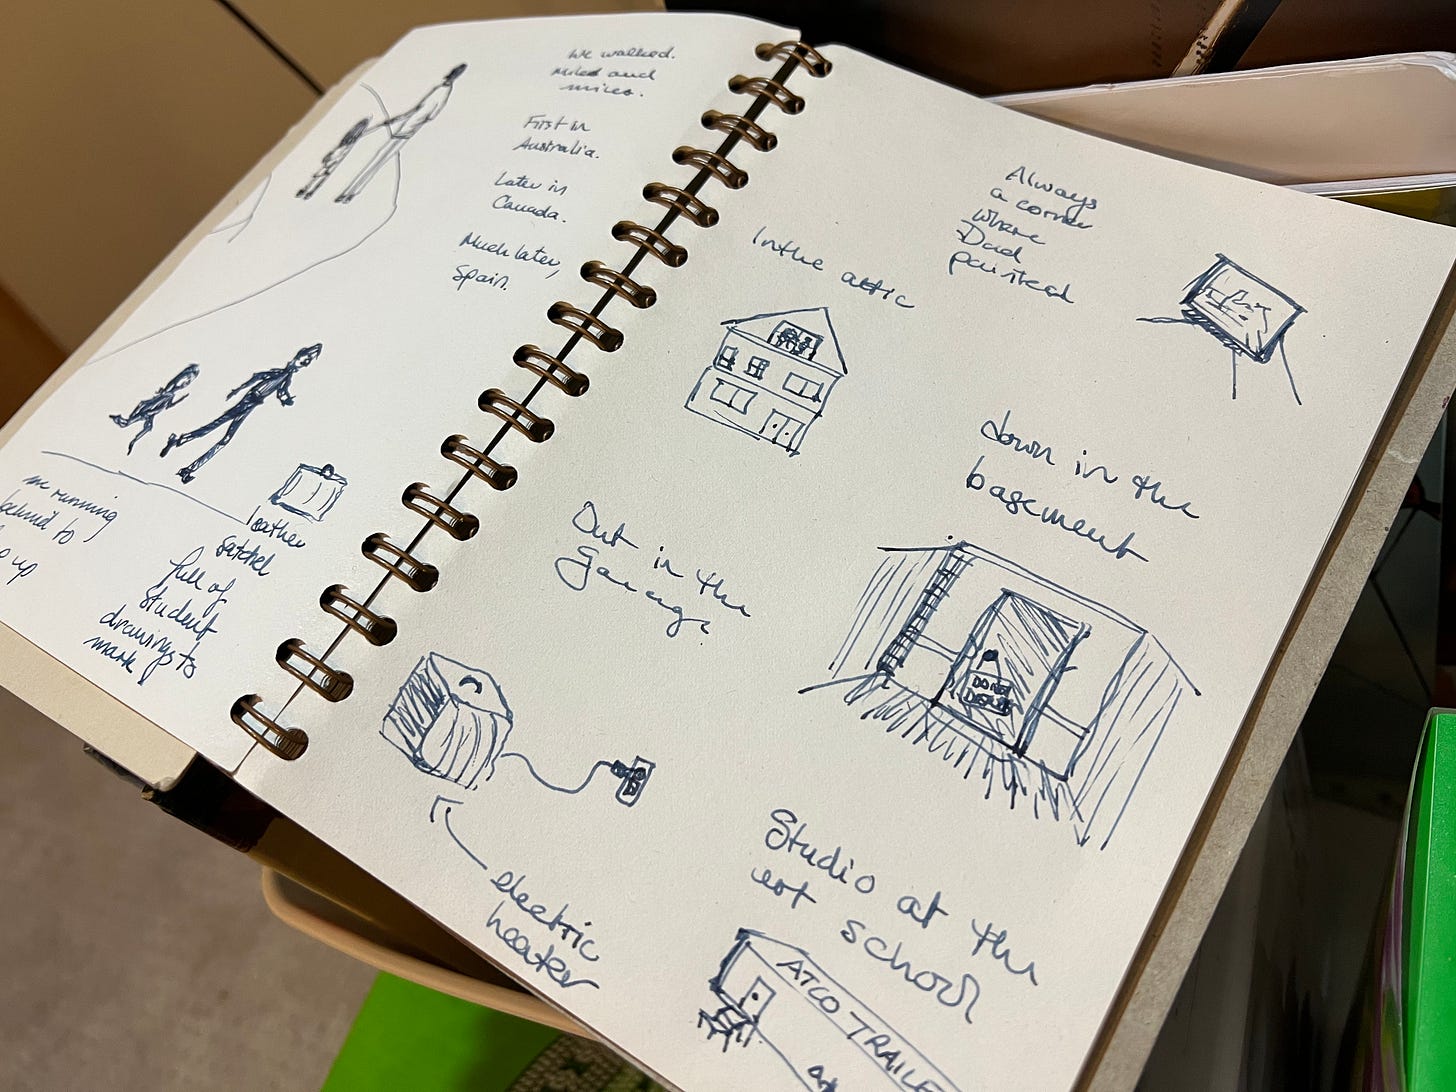 We walked.
Miles and
miles.
First in
Australia.
Later in
Canada.
Much later,
Spain.
me running
behind to
up
leather
satchel
full of
student
drawings to
mark
Always
a corner
where
Dad
painted
In the attic
down in the
basement
Out in the
Garage
DO NOT
DISTURB
electric
heater
Studio at the
art school
ATCO TRAILE